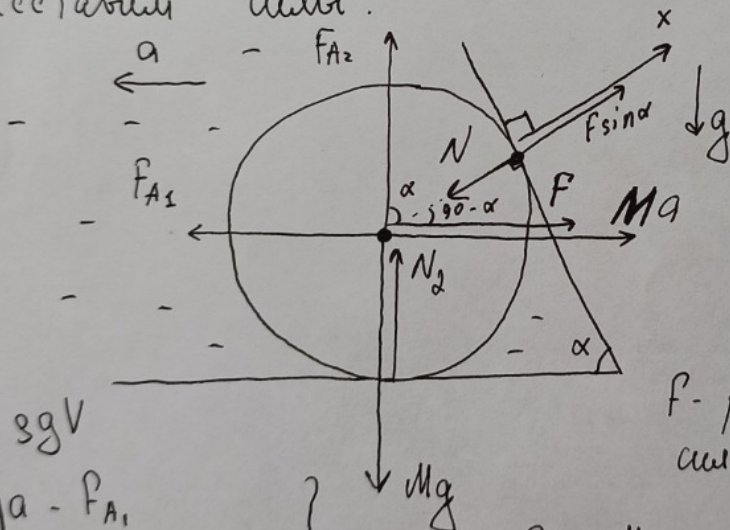 силы.
a
F_A₂
x
F sinα
g
N
F_A₁
α
90-α
F
Ma
N₂
α
ρgV
F -
сил
Mg
a - F_A₁